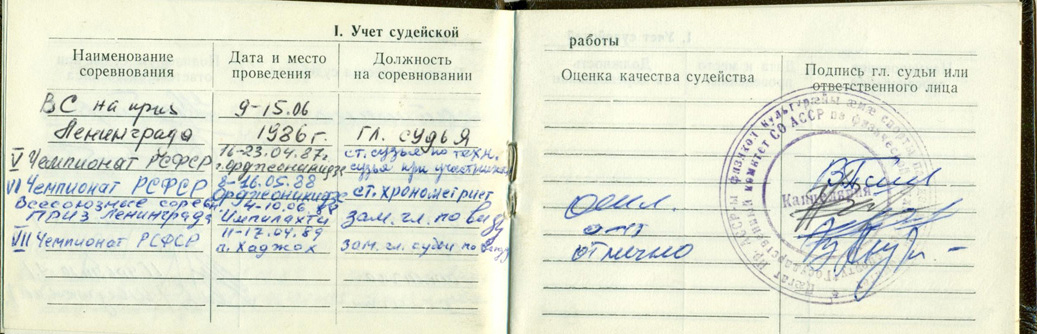 I. Учет судейской
Наименование соревнования
Дата и место проведения
Должность на соревновании
ВС на приз 9-15.06
Ленинграда 1986 г. гл. судья
V Чемпионат РСФСР 16-23.04.87. г. Орджоникидзе ст. судья по техн. судья при участниках
VI Чемпионат РСФСР 8-16.05.88 Орджоникидзе ст. хронометрист
Всесоюзные сорев. 4-10.06.88
Приз Ленинграда Импилахти зам. гл. по виду
VII Чемпионат РСФСР 11-17.04.89 п. Хаджох зам. гл. судьи по виду
работы
Оценка качества судейства
Подпись гл. судьи или ответственного лица
отл.
отл
отлично
Канцелярия